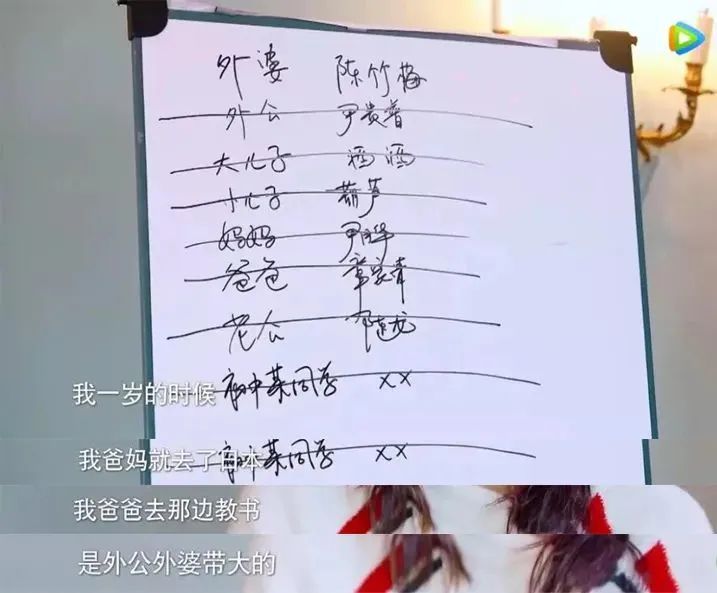 外婆 陈竹梅
外公 尹贵普
大儿子 酒酒
小儿子 葫芦
妈妈
爸爸 章家青
老公
高中某同学 XX
我一岁的时候
高中某同学 XX
我爸妈就去了日本
我爸爸去那边教书
是外公外婆带大的